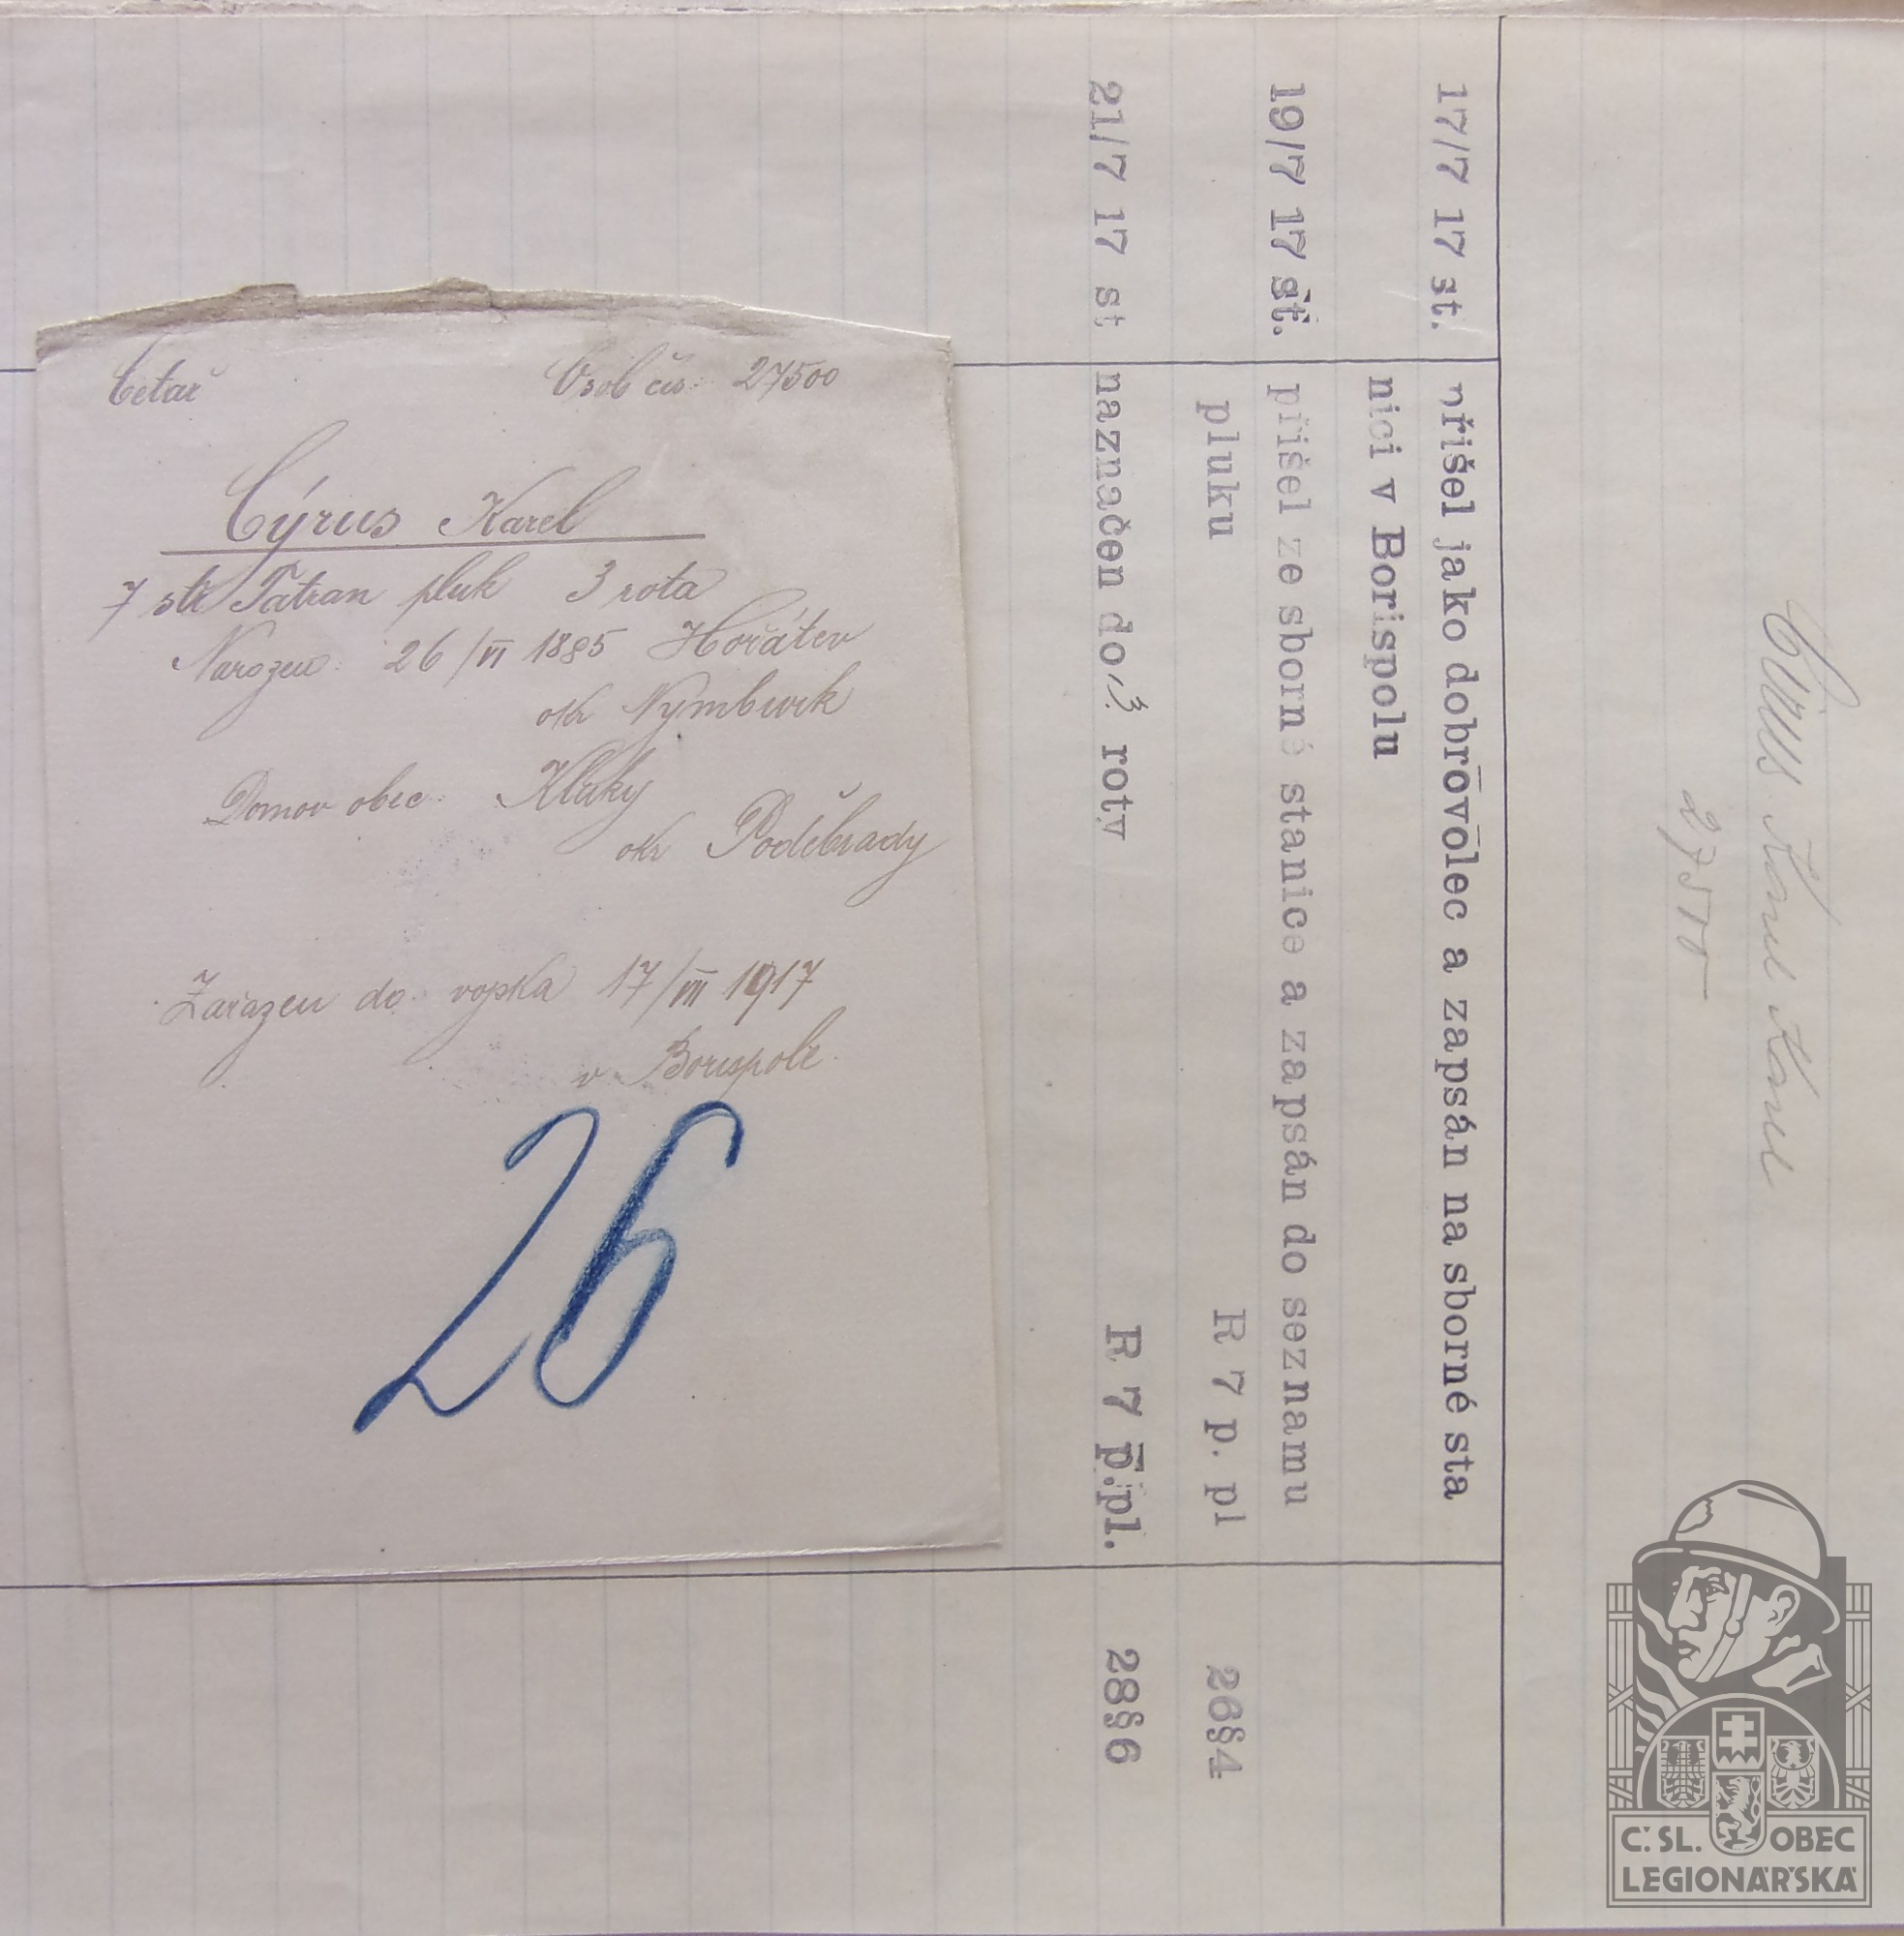 Četař Osob čís: 27500
Cýrus Karel
7 stř Tatran pluk 3 rota
Narozen: 26/VI 1885 Hořátev
okr Nymburk
Domov obec: Kluky
okr Poděbrady
Zařazen do vojska 17/VII 1917
v Borispolu
26
Cýrus Karel Karel
27500
17/7 17 st. přišel jako dobrovolec a zapsán na sborné sta
nici v Borispolu
19/7 17 st. přišel ze sborné stanice a zapsán do seznamu
pluku R 7 p. pl 26§4
21/7 17 st naznačen do 3. roty R 7 p.pl. 28§6
Č. SL. OBEC
LEGIONÁŘSKÁ